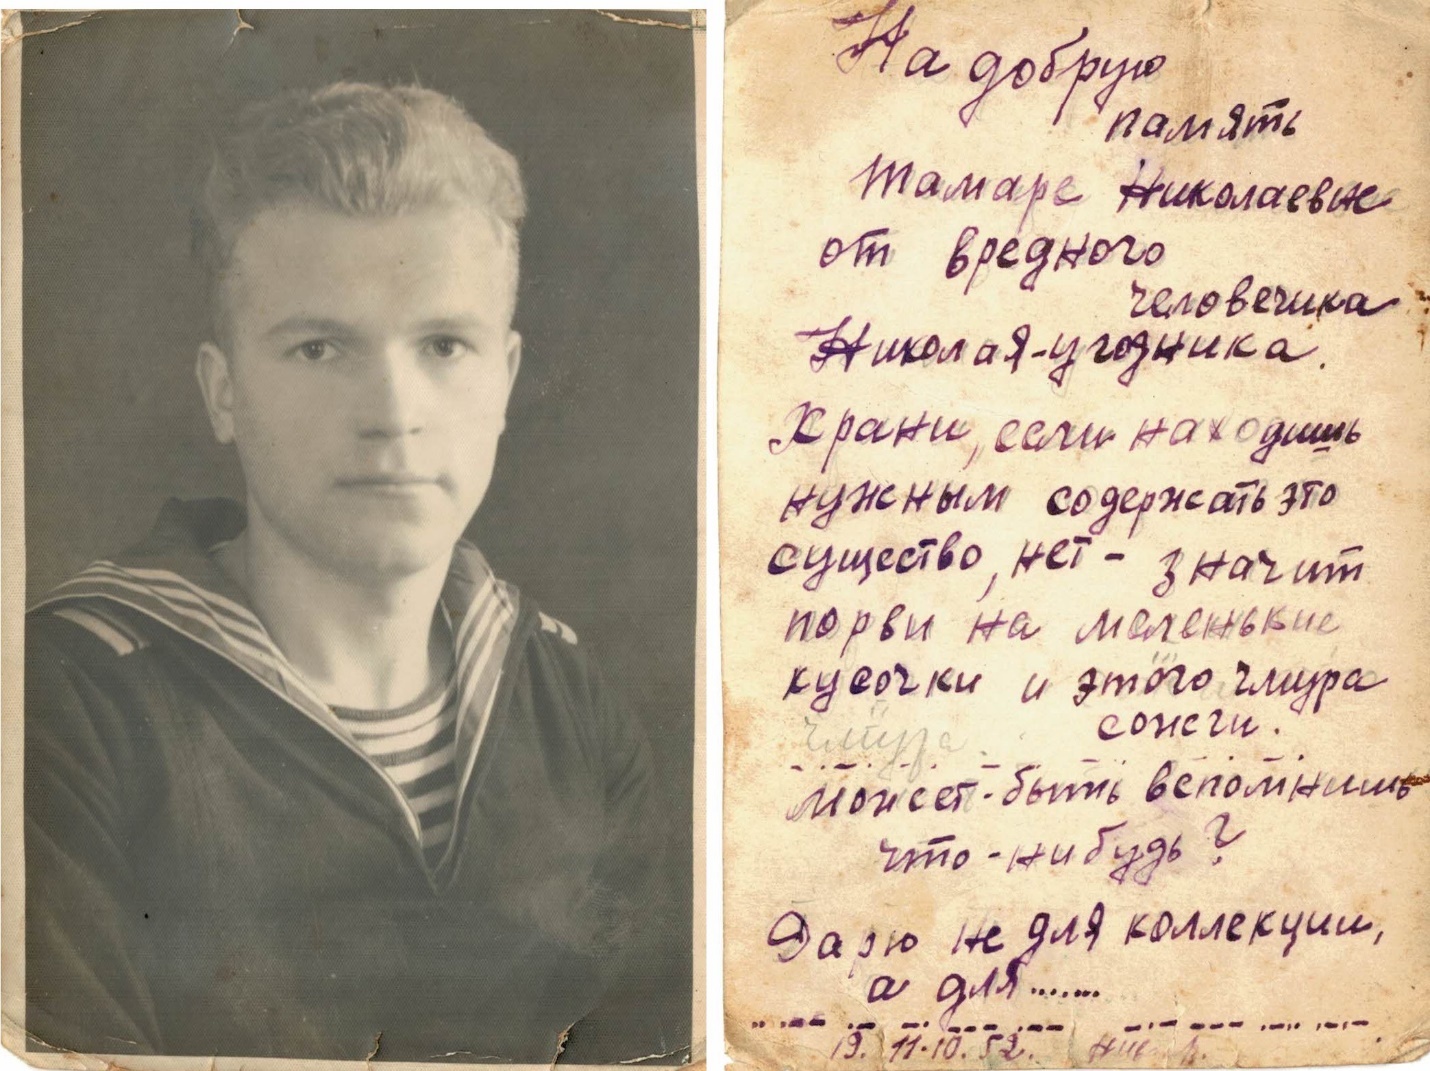 На добрую
память
Тамаре Николаевне
от вредного
человечика
Николая-угодника.
Храни, если находишь
нужным содержать это
существо, нет - значит
порви на маленькие
кусочки и этого чмура
сожги.
чмура
может-быть вспомнишь
что-нибудь?
Дарю не для коллекции,
а для.......
19. 11.10.52.